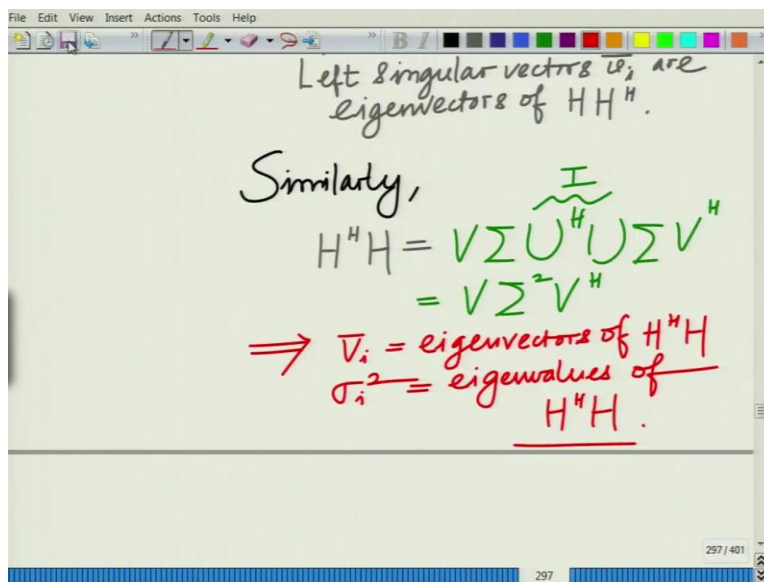 File Edit View Insert Actions Tools Help
B I
Left singular vectors ū_i are
eigenvectors of HH^H.
Similarly,
I
H^H H = V Σ U^H U Σ V^H
= V Σ² V^H
⟹ V̄_i = eigenvectors of H^H H
σ_i² = eigenvalues of
H^H H.
297 / 401
297